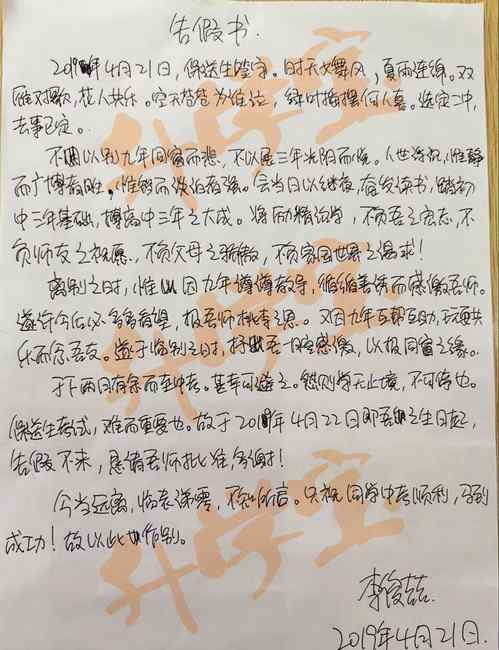 告假书.
2019年4月21日,保送生签字。时天女舞风,夏雨连绵。双
雁对歌,花人共乐。空天苍苍为谁泣,绿叶摇摆何人喜。选定二中,
去事已定。
不因以别九年同窗而悲,不以展三年光阳而悦。人世浮沉,惟静
而广博者胜,惟弱而淡泊者强。会当日以继夜,奋发读书,踏初
中三年基础,搏高中三年之大成。将励精治学,不负吾之宏志,不
负师友之祝愿,不负父母之骄傲,不负家国世界之渴求!
离别之时,惟以因九年谆谆教导,循循善诱而感激吾师。
遂许今后必多多看望,报吾师桃李之恩。又因九年互帮互助,玩耍共
乐而念吾友。遂于临别之时,抒此吾一腔感激,以报同窗之缘。
于下两日有余而至中考。甚幸可避之。然则学无止境,不可怠也。
保送生考试,难而重要也。故于2019年4月22日即吾之生日起,
告假不来,恳请吾师批准,多谢!
今当远离,临表涕零,不知所言。只祝同学中考顺利,马到
成功!故以此书作别。
李俊喆.
2019年4月21日.
升学宝
升学宝
升学宝